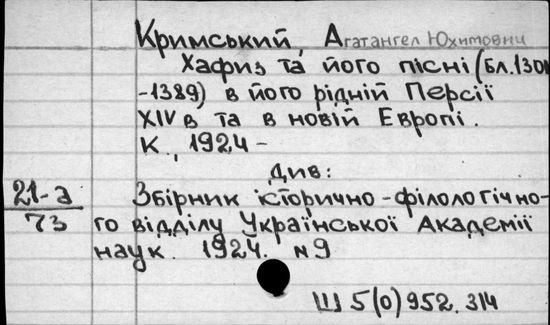 Кримський, Агатангел Юхимович
Хафиз та його пісні (Бл. 1300
-1389) в його рідній Персії
XIV в та в новій Европі.
К., 1924 -
див:
21-а Збірник історично-філологічно-
73 го відділу Української Академії
наук. 1924. N 9
Ш 5(0) 952.314